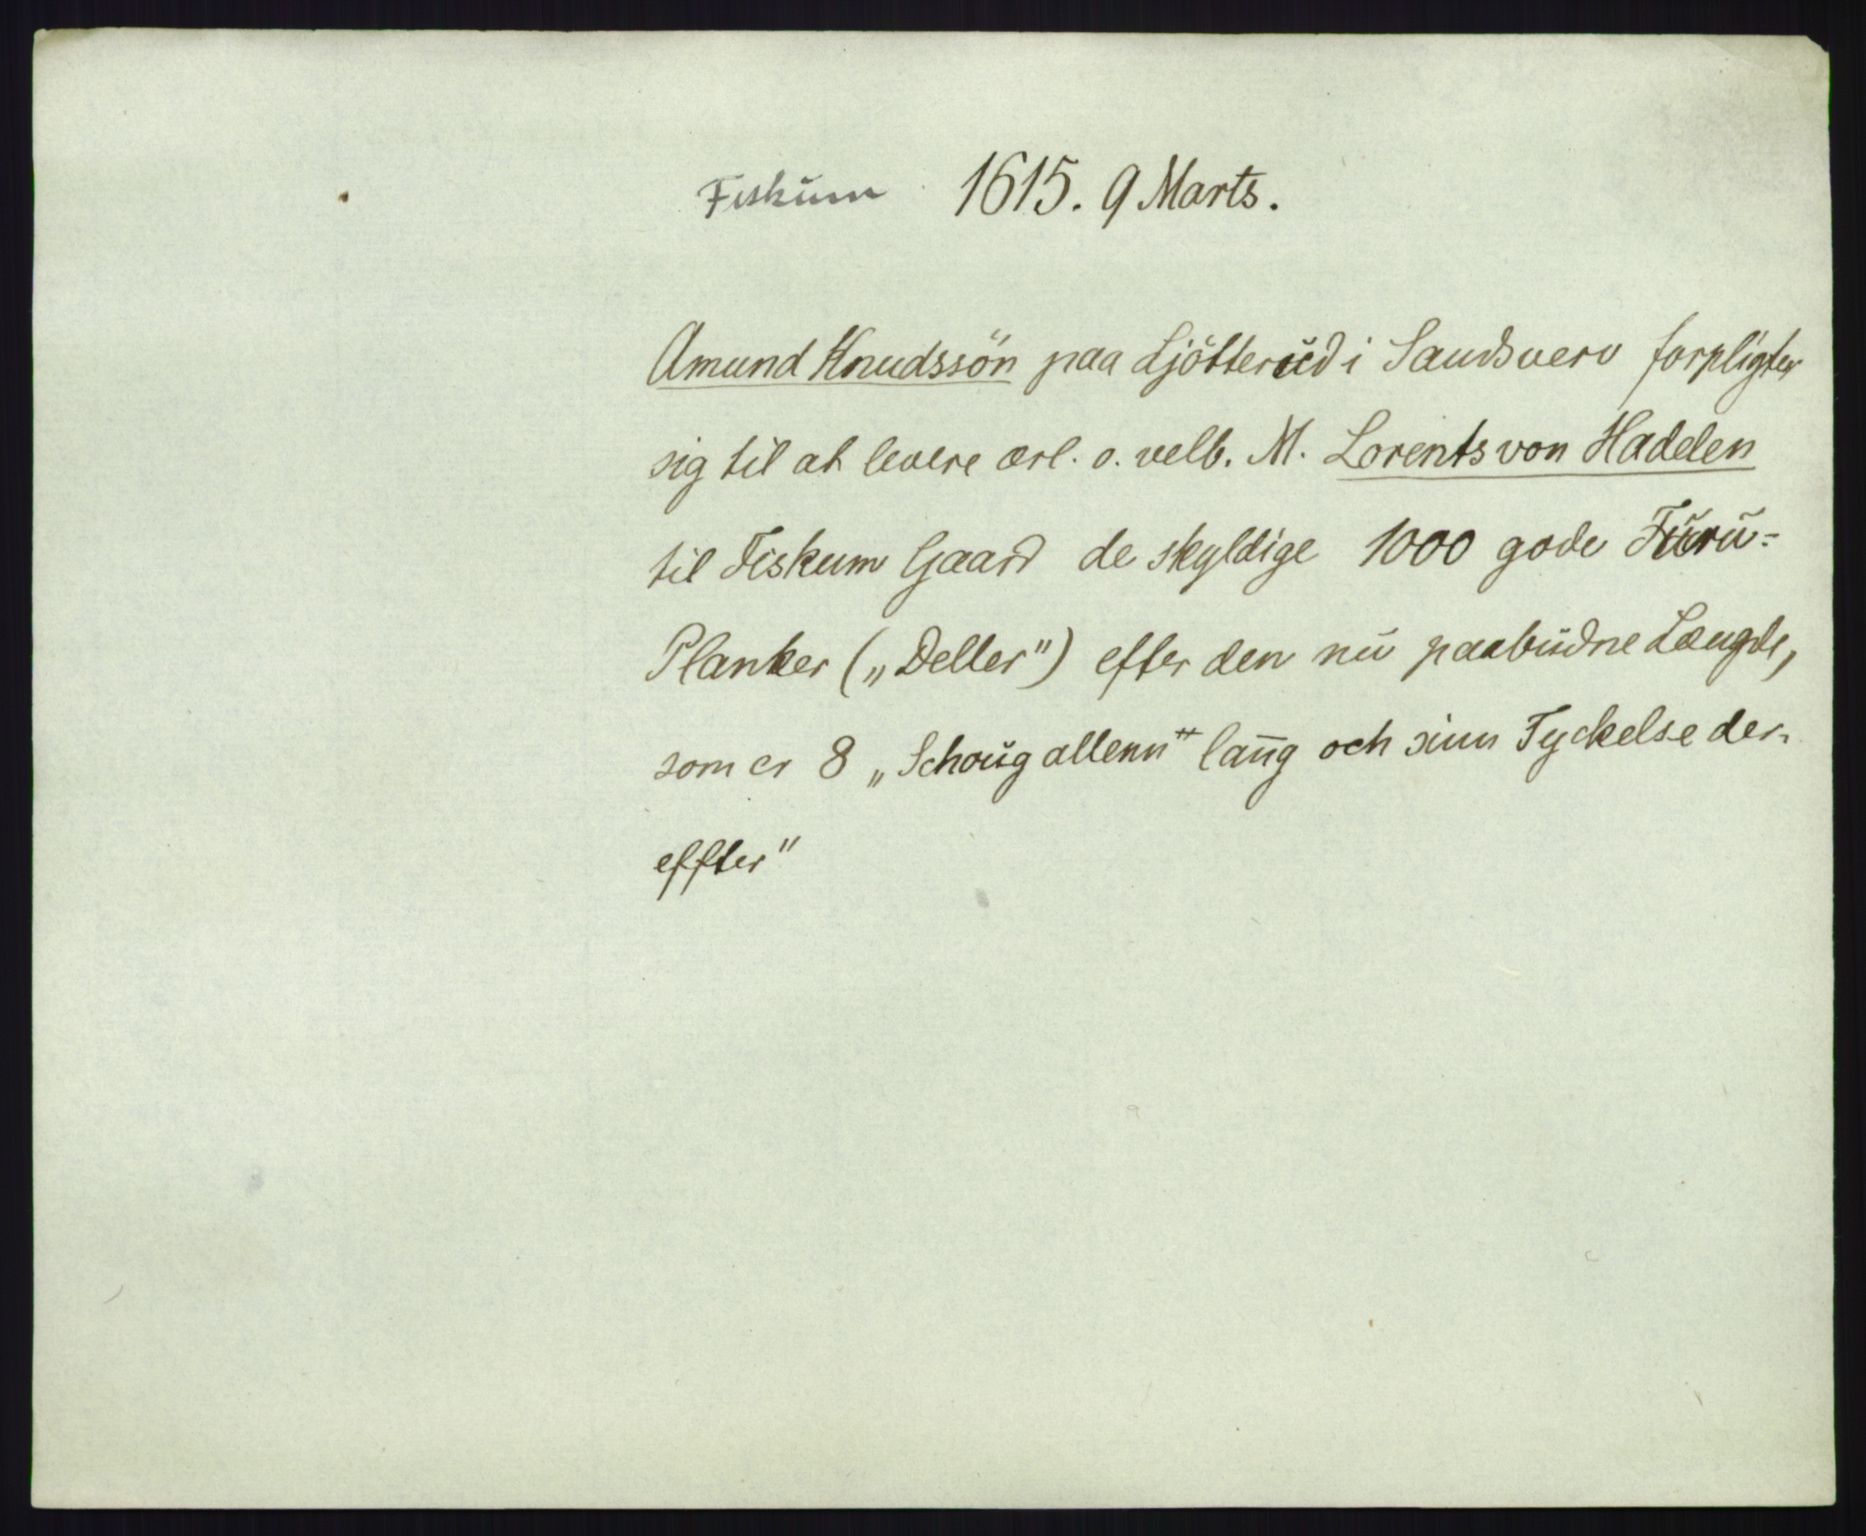 Fiskum 1615. 9 Marts.
Amund Knudssön paa Ljötterud i Sandsverv forpligter
sig til at levere ærl. o. velb. M. Lorents von Hadelen
til Fiskum Gaard de skyldige 1000 gode Furu=
Planker („Deller") efter den nu paabudne Længde,
som er 8 „Schougallenn" lanng och sinn Tyckelse der-
effter"